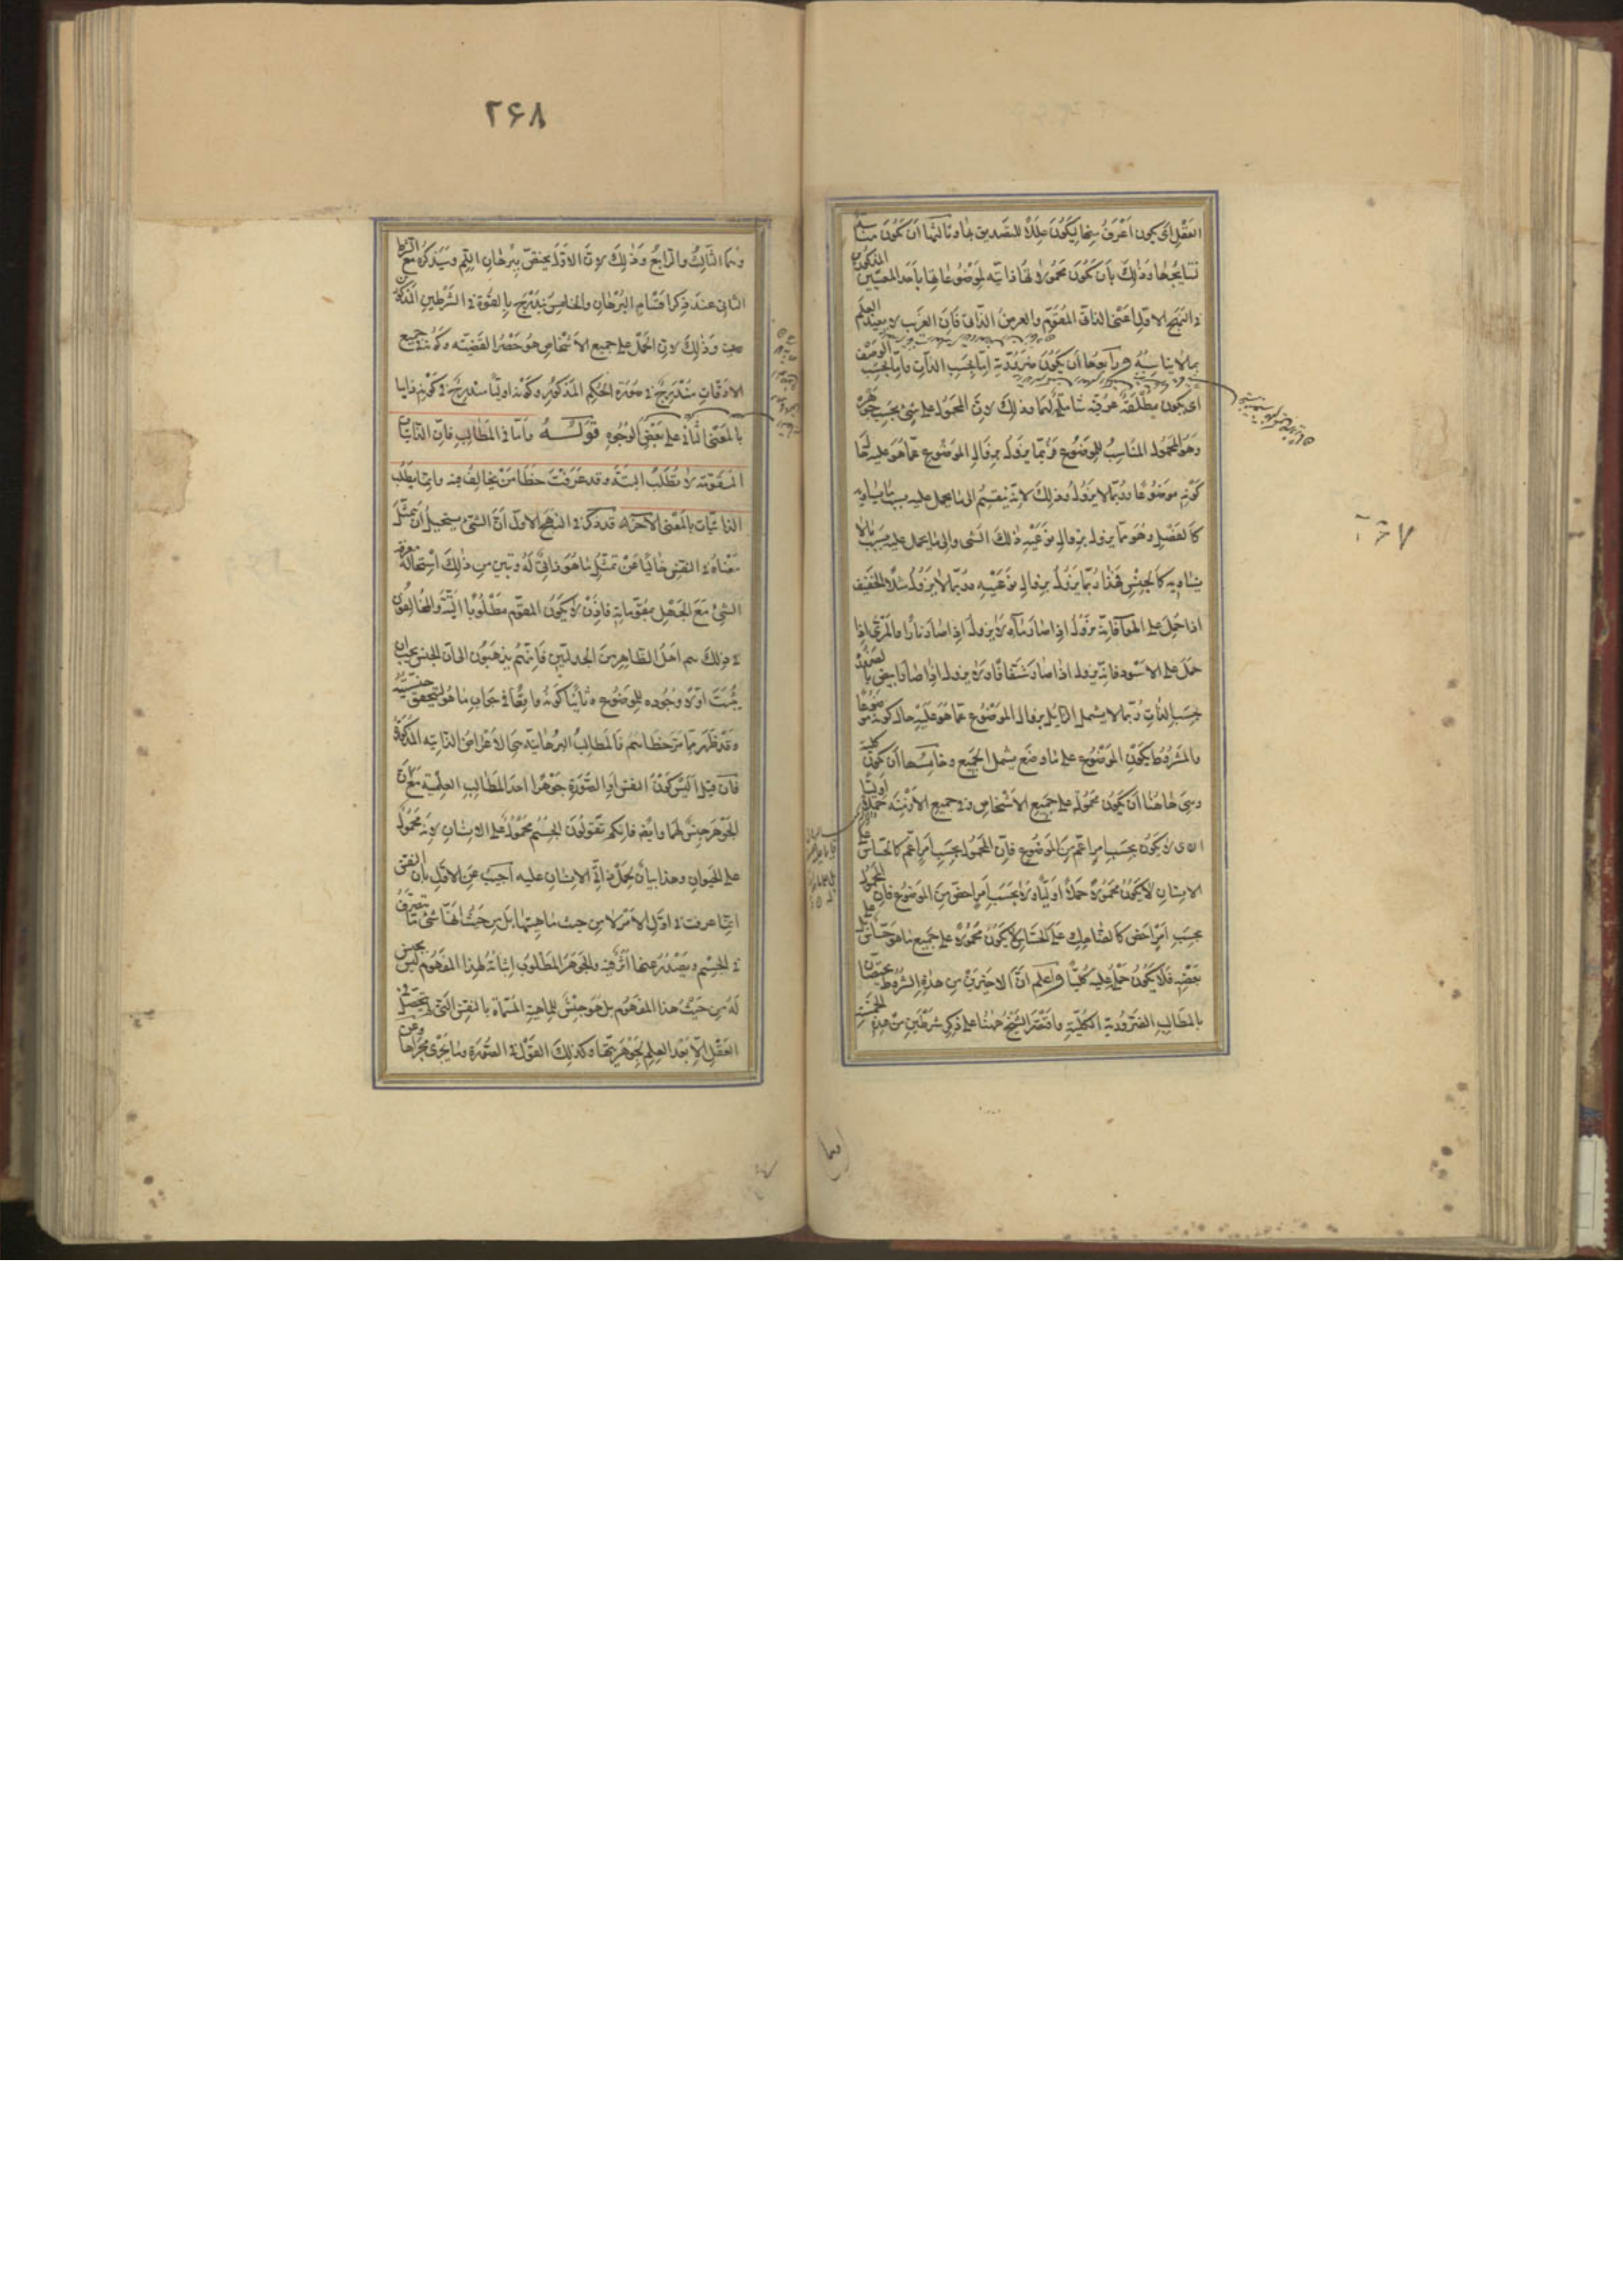 العقل اى يكون اعرف منها ليكون عللا للتصديق بها وثالثها ان تكون مناسبة
نتايجها وذلك بان تكون محمولاتها ذاتيه لموضوعاتها باحد المعنيين المذكورين
فى النهج الاول اعنى الذاتى المقوم والعرض الذاتى فان الغريب لا يفيد العلم
بما لا يناسبه ورابعها ان يكون ضرورية اما بحسب الذات واما بحسب الوصف
اى يكون مطلقة عرفية شاملة لهما وذلك لان المحمول على شئ بحسب جوهره
وهو المحمول المناسب للموضوع فربما يزول بزوال الموضوع عما هو عليه حال
كونه موضوعا وربما لا يزول وذلك لانه ينقسم الى ما يحمل عليه بسبب ما يساويه
كالفصل وهو مما يزول بزوال نوعية ذلك الشى والى ما يحمل عليه بسبب ما لا
يساويه كالجنس فهذا ربما يزول بزوال نوعيته وربما لا يزول مثلا الخفيف
اذا حمل على الهوآ فانه يزول اذا صار مآء ولا يزول اذا صار نارا والمرئى اذا
حمل على الاسود فانه يزول اذا صار شفافا ولا يزول اذا صار ابيض
بحسب الذات ربما لا يشمل الزايل بزوال الموضوع عما هو عليه حال كونه موضوعا
والمشروط بكون الموضوع على ما وضع يشمل الجميع وخامسها ان يكون كلية
وهى هاهنا ان يكون محموله على جميع الاشخاص وفى جميع الازمنة حملا اوليا
اى لا يكون بحسب امر اعم من الموضوع فان المحمول بحسب امر اعم كالحساس على
الانسان لا يكون محمولا حملا اوليا ولا بحسب امر اخص من الموضوع فان المحمول
بحسب امر اخص كالضاحك على الحساس لا يكون محمولا على جميع ما هو حساس بل على
بعضه فلا يكون حمله عليه كليا واعلم ان الاخيرين من هذه الشروط يختصان
بالمطالب الضرورية الكلية واقتصر الشيخ ههنا على ذكر شرطين من هذه الخمسة
وهما
٢٦٧
٢۶٨
وهما الثالث والرابع وذلك لان الاول يختص ببرهان اللم وسيذكره مع الشرط
الثانى عند ذكر اقسام البرهان والخامس يندرج بالقوة فى الشرطين المذكورين
وذلك لان الحمل على جميع الاشخاص هو حصر القضيه وكونه فى جميع
الاوقات مندرج فى ضرورة الحكم المذكور وكونه اوليا مندرج فى كونه ذاتيا
بالمعنى الثانى على بعض الوجوه قوله واما فى المطالب فان الذاتيات
المقومة لا تطلب البتة وقد عرفت خطا من يخالف فيه وانما يطلب
الذاتيات بالمعنى الآخر قد ذكر فى النهج الاول ان الشى يستحيل ان يتمثل
معناه فى النفس خاليا عن تمثل ما هو ذاتى له وتبين من ذلك استحالة معرفة
الشئ مع الجهل بمقوماته فاذن لا يكون المقوم مطلوبا البتة والمخالفون
فى ذلك هم اهل الظاهر من الجدليين فانهم يذهبون الى ان الجنس يجب ان
يثبت اولا وجوده للموضوع وثانيا كونه واقعا فى جواب ما هو ليتحقق جنسيته
وقد ظهر مما مر خطاءهم فالمطالب البرهانيه هى الاعراض الذاتيه المذكورة
فان قيل اليس كون النفس او الصورة جوهرا احد المطالب العلمية مع ان
الجوهر جنس لهما وايضا فانكم تقولون الجسم محمول على الانسان لانه محمول
على الحيوان وهذا بيان لحمل ذاتى الانسان عليه اجيب عن الاول بان النفس
انما عرفت فى اول الامر لا من حيث ماهيتها بل من حيث انها شئ ما يتصرف
فى الجسم ويصدر عنها اثر فيه والجوهر المطلوب اثباته لهذا المفهوم ليس بجنس
له من حيث هذا المفهوم بل هو جنس للماهية المسماة بالنفس التى لم يتحصل فى
العقل الا بعد العلم بجوهريتها وكذلك القول فى الصورة وما يجرى مجراها وعن